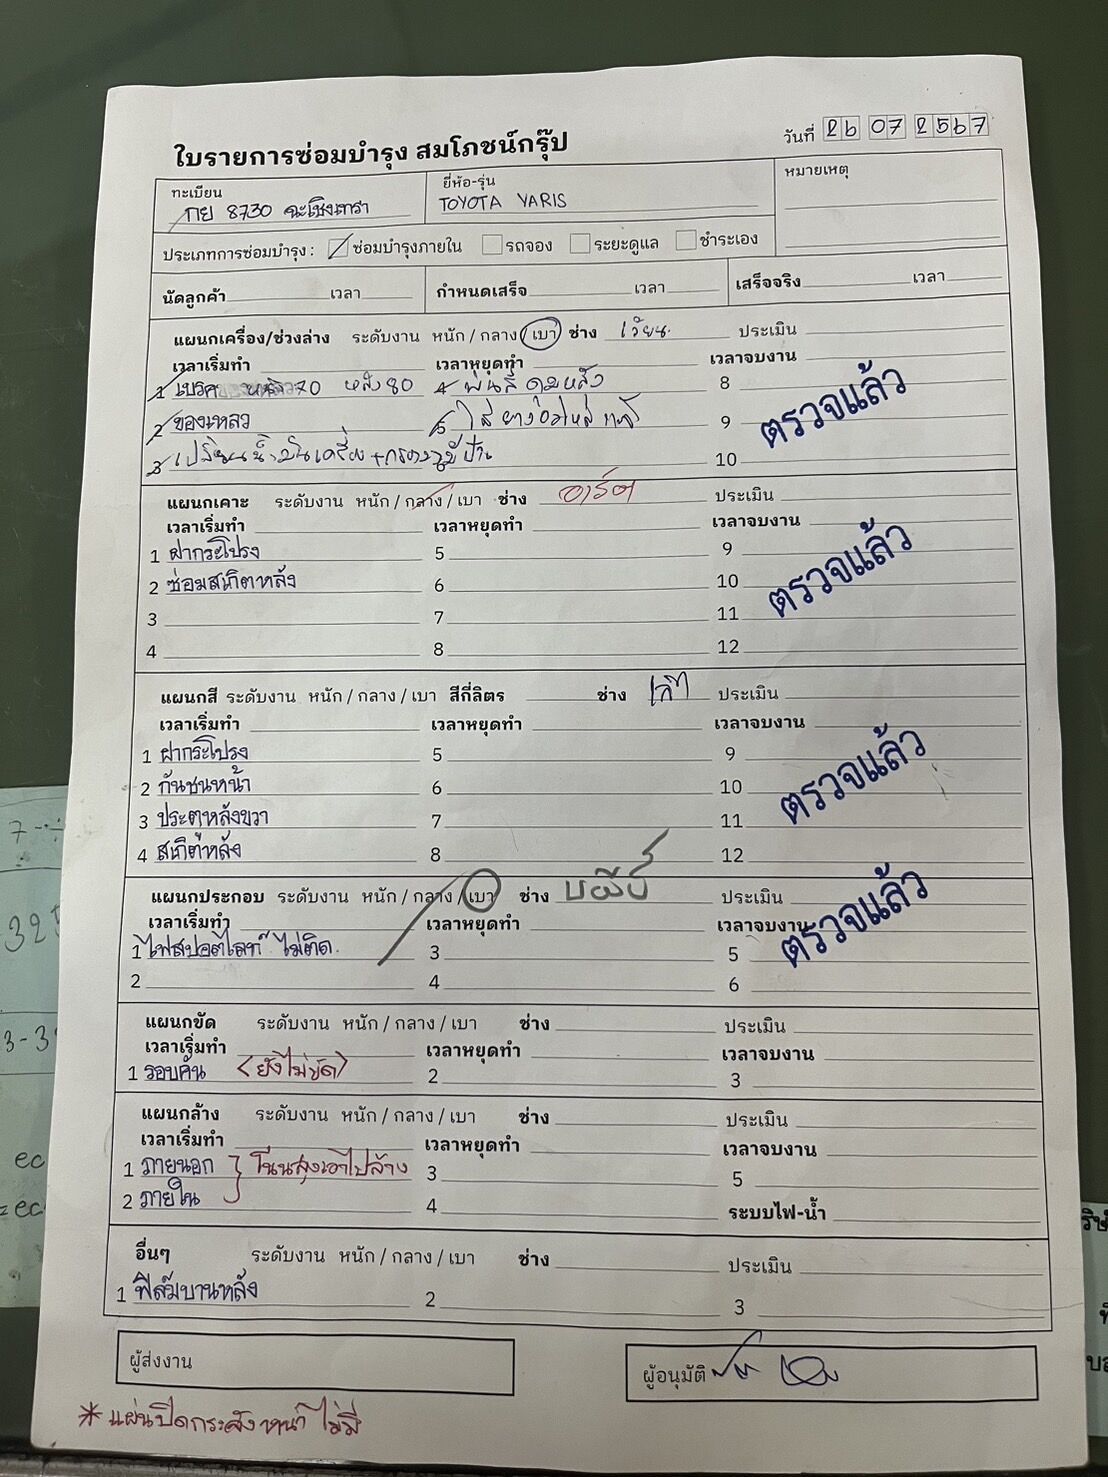 ใบรายการซ่อมบำรุง สมโภชน์กรุ๊ป
วันที่ 26 07 2567
ทะเบียน กย 8730 ฉะเชิงเทรา
ยี่ห้อ-รุ่น TOYOTA YARIS
หมายเหตุ
ประเภทการซ่อมบำรุง : ซ่อมบำรุงภายใน รถจอง ระยะดูแล ชำระเอง
นัดลูกค้า เวลา กำหนดเสร็จ เวลา เสร็จจริง เวลา
แผนกเครื่อง/ช่วงล่าง ระดับงาน หนัก / กลาง / เบา ช่าง เวียน ประเมิน
เวลาเริ่มทำ เวลาหยุดทำ เวลาจบงาน
1 เบรค หน้า 70 หลัง 80 4 พ่นสีดุมหลัง 8
2 ของเหลว 5 9
3 เปลี่ยนน้ำมันเครื่อง+กรอง 10
ตรวจแล้ว
แผนกเคาะ ระดับงาน หนัก / กลาง / เบา ช่าง อาร์ต ประเมิน
เวลาเริ่มทำ เวลาหยุดทำ เวลาจบงาน
1 ฝากระโปรง 5 9
2 ซ่อมสเกิตหลัง 6 10
3 7 11
4 8 12
ตรวจแล้ว
แผนกสี ระดับงาน หนัก / กลาง / เบา สีกี่ลิตร ช่าง ประเมิน
เวลาเริ่มทำ เวลาหยุดทำ เวลาจบงาน
1 ฝากระโปรง 5 9
2 กันชนหน้า 6 10
3 ประตูหลังขวา 7 11
4 สเกิตหลัง 8 12
ตรวจแล้ว
แผนกประกอบ ระดับงาน หนัก / กลาง / เบา ช่าง ประเมิน
เวลาเริ่มทำ เวลาหยุดทำ เวลาจบงาน
1 ไฟสปอตไลท์ ไม่ติด 3 5
2 4 6
ตรวจแล้ว
แผนกขัด ระดับงาน หนัก / กลาง / เบา ช่าง ประเมิน
เวลาเริ่มทำ เวลาหยุดทำ เวลาจบงาน
1 รอบคัน (ยังไม่ขัด) 2 3
แผนกล้าง ระดับงาน หนัก / กลาง / เบา ช่าง ประเมิน
เวลาเริ่มทำ เวลาหยุดทำ เวลาจบงาน
1 ภายนอก 3 5
2 ภายใน 4 ระบบไฟ-น้ำ
อื่นๆ ระดับงาน หนัก / กลาง / เบา ช่าง ประเมิน
1 ฟิล์มบานหลัง 2 3
ผู้ส่งงาน
ผู้อนุมัติ
* แผ่นปิดกระจังหน้า ไม่มี